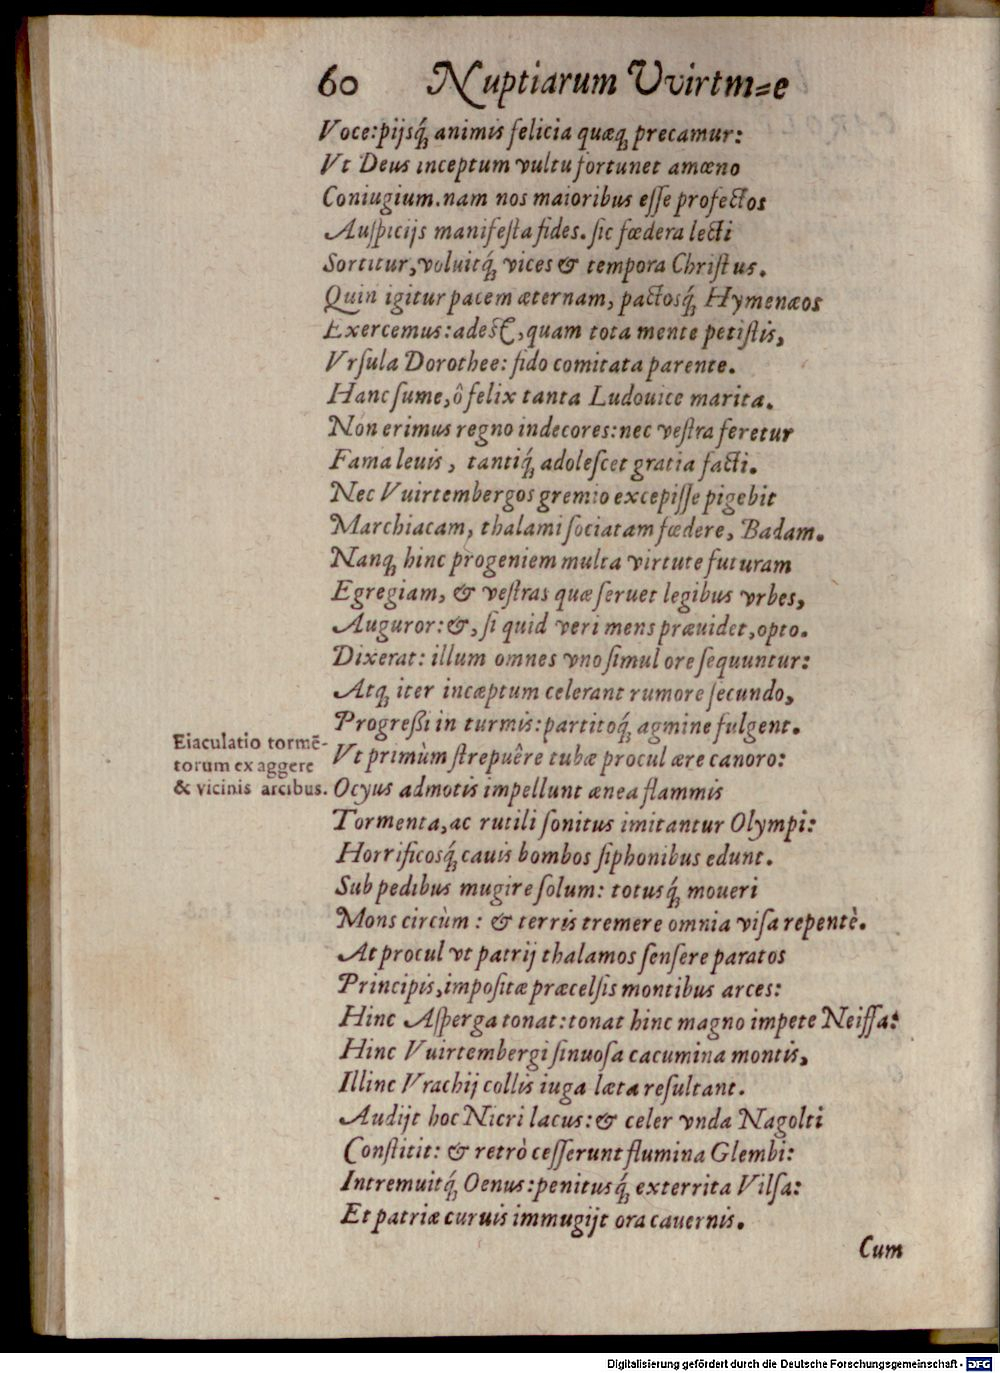 60 Nuptiarum Vvirtm=e
Voce: pijsq́; animis felicia quæq; precamur:
Vt Deus inceptum vultu fortunet amœno
Coniugium. nam nos maioribus eſſe profectos
Auſpicijs manifeſta fides. ſic fœdera lecti
Sortitur, voluitq́; vices & tempora Chriſtus.
Quin igitur pacem æternam, pactosq́; Hymenæos
Exercemus: adeſt, quam tota mente petiſtis,
Vrſula Dorothee: fido comitata parente.
Hanc ſume, ô felix tanta Ludouice marita.
Non erimus regno indecores: nec veſtra feretur
Fama leuis, tantiq́; adoleſcet gratia facti.
Nec Vuirtembergos gremio excepiſſe pigebit
Marchiacam, thalami ſociatam fœdere, Badam.
Nanq; hinc progeniem multa virtute futuram
Egregiam, & veſtras quæ ſeruet legibus vrbes,
Auguror: &, ſi quid veri mens præuidet, opto.
Dixerat: illum omnes vno ſimul ore ſequuntur:
Atq; iter incæptum celerant rumore ſecundo,
Progreßi in turmis: partitoq́; agmine fulgent.
Eiaculatio tormẽ-
torum ex aggere
& vicinis arcibus.
Vt primùm ſtrepuêre tubæ procul ære canoro:
Ocyus admotis impellunt ænea flammis
Tormenta, ac rutili ſonitus imitantur Olympi:
Horrificosq́; cauis bombos ſiphonibus edunt.
Sub pedibus mugire ſolum: totusq́; moueri
Mons circùm: & terris tremere omnia viſa repentè.
At procul vt patrij thalamos ſenſere paratos
Principis, impoſitæ præcelſis montibus arces:
Hinc Aſperga tonat: tonat hinc magno impete Neiffa:
Hinc Vuirtembergi ſinuoſa cacumina montis,
Illinc Vrachij collis iuga læta reſultant.
Audijt hoc Nicri lacus: & celer vnda Nagolti
Conſtitit: & retrò ceſſerunt flumina Glembi:
Intremuitq́; Oenus: penitusq́; exterrita Vilſa:
Et patriæ curuis immugijt ora cauernis.
Cum
Digitalisierung gefördert durch die Deutsche Forschungsgemeinschaft - DFG